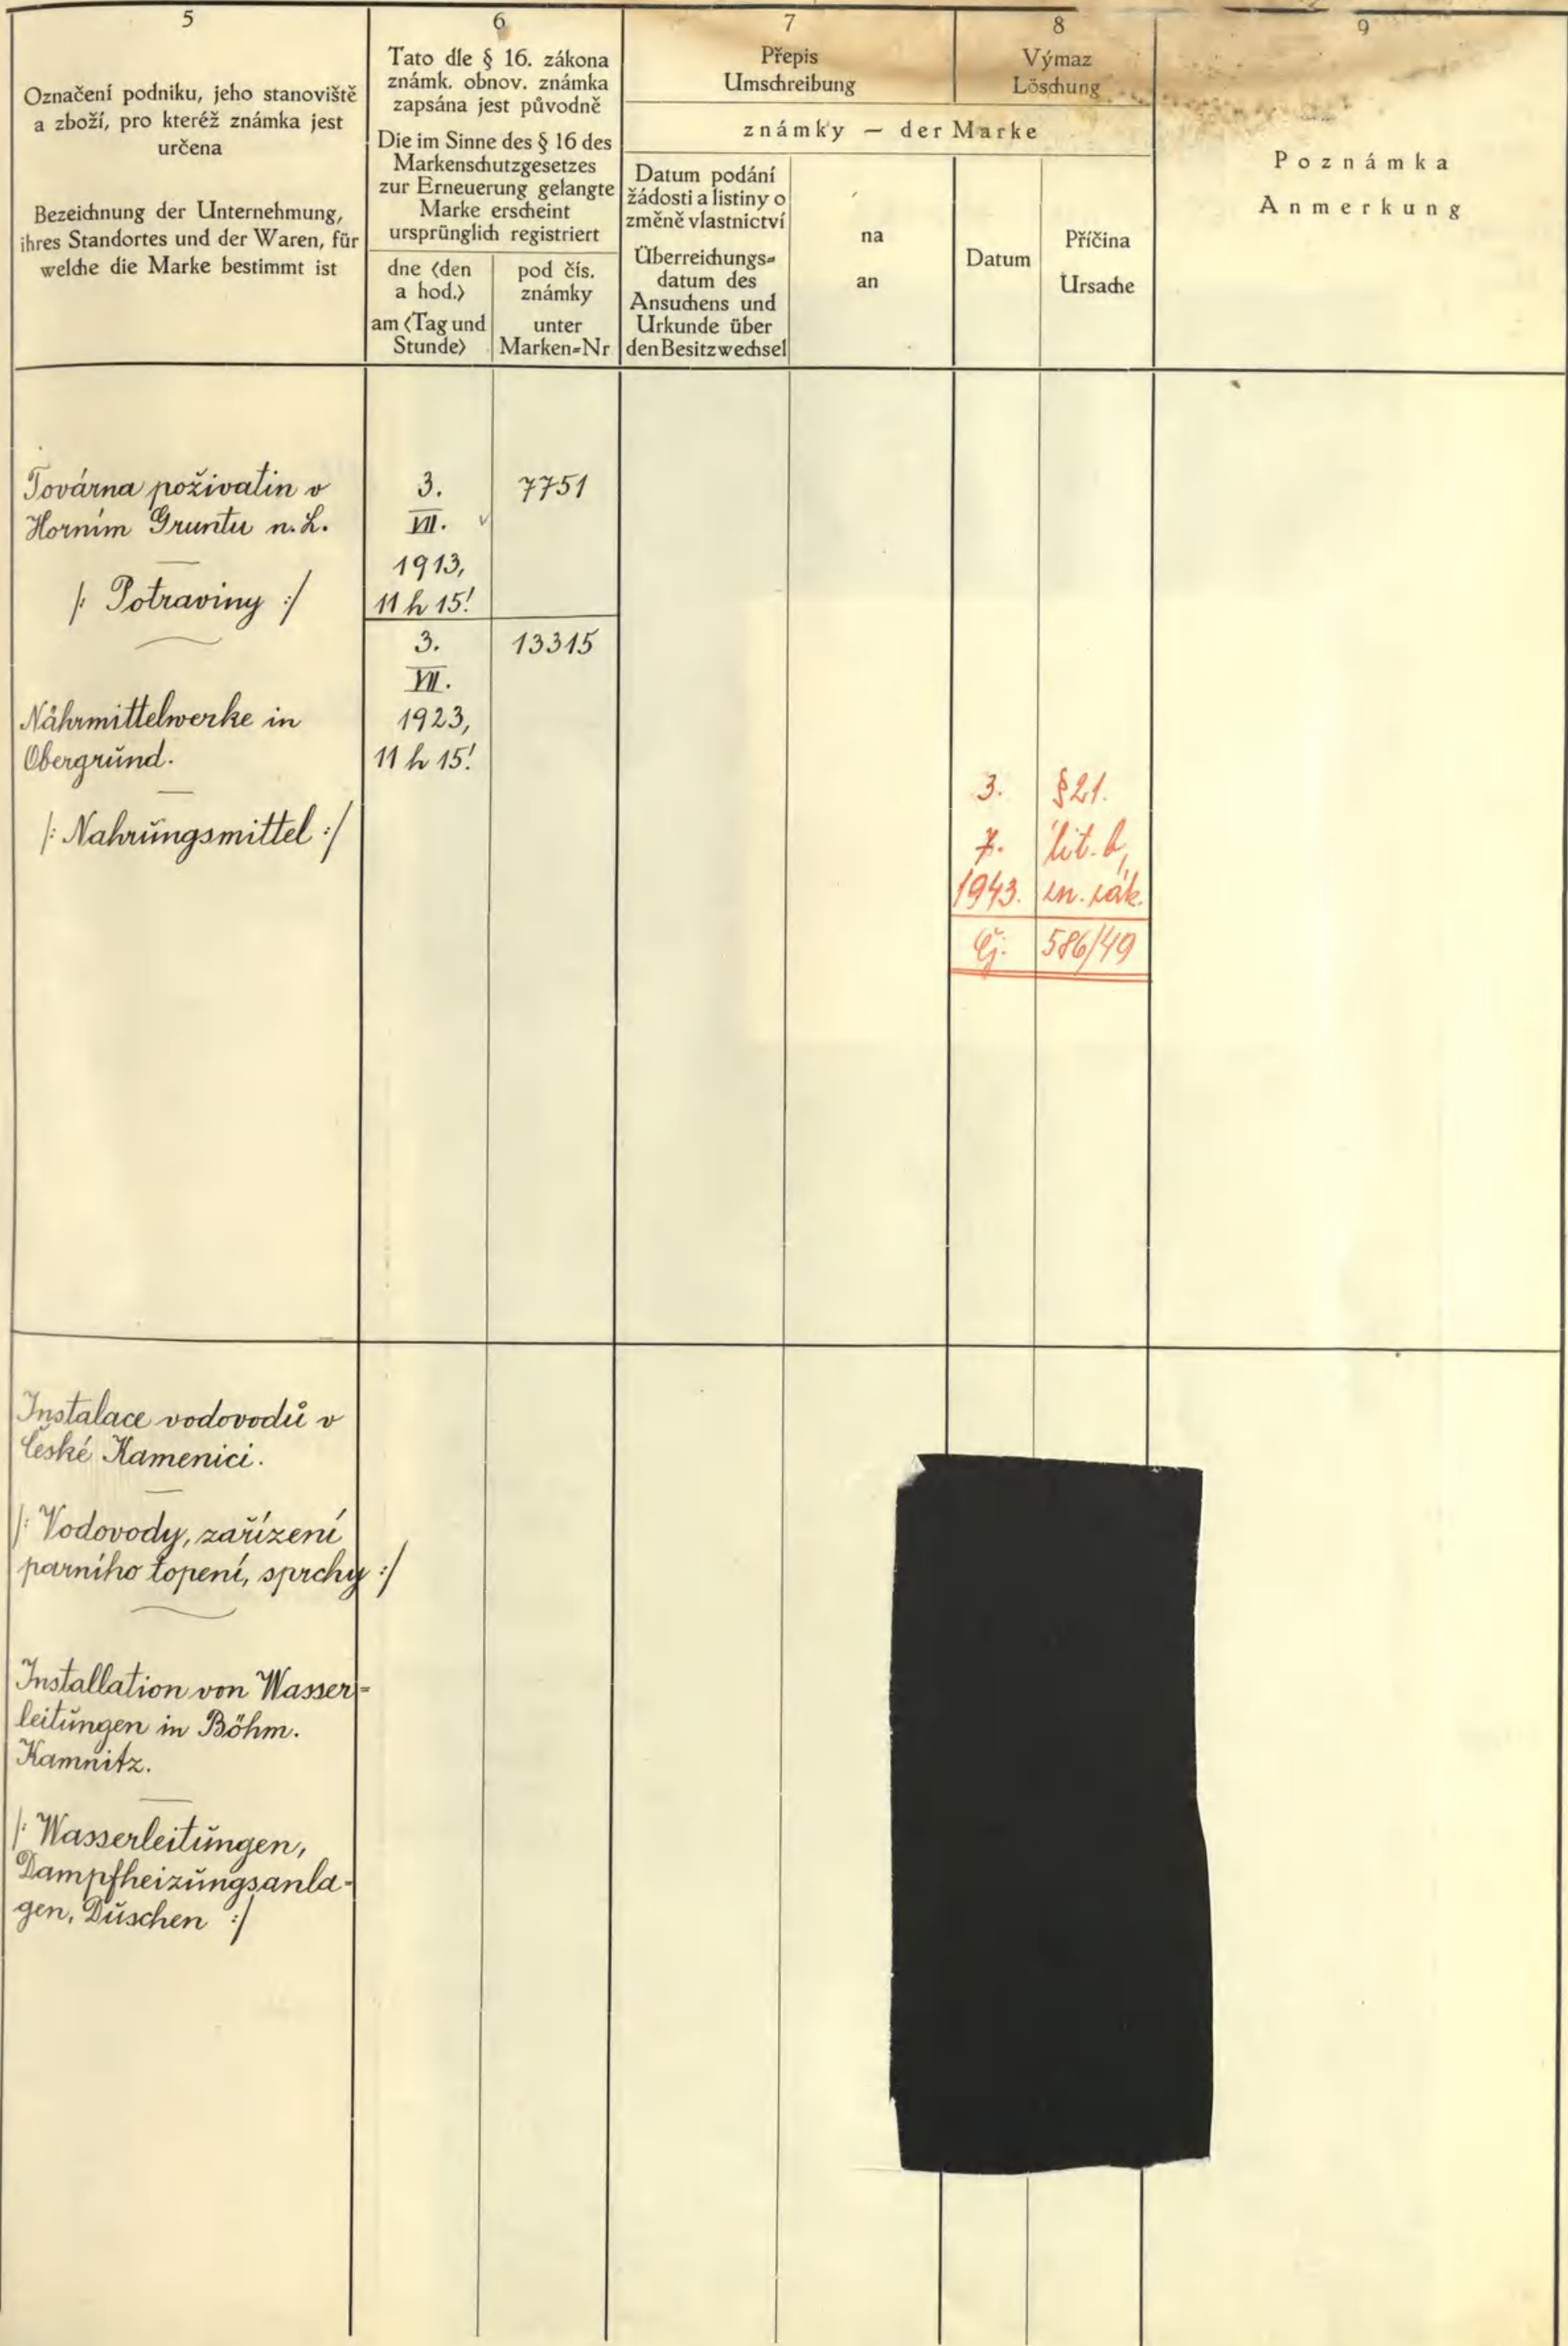 5
Označení podniku, jeho stanoviště
a zboží, pro kteréž známka jest
určena
Bezeichnung der Unternehmung,
ihres Standortes und der Waren, für
welche die Marke bestimmt ist
6
Tato dle § 16. zákona
známk. obnov. známka
zapsána jest původně
Die im Sinne des § 16 des
Markenschutzgesetzes
zur Erneuerung gelangte
Marke erscheint
ursprünglich registriert
dne (den
a hod.)
am (Tag und
Stunde)
pod čís.
známky
unter
Marken=Nr
7
Přepis
Umschreibung
8
Výmaz
Löschung
známky — der Marke
Datum podání
žádosti a listiny o
změně vlastnictví
Überreichungs=
datum des
Ansuchens und
Urkunde über
den Besitzwechsel
na
an
Datum
Příčina
Ursache
9
Poznámka
Anmerkung
Továrna poživatin v
Horním Gruntu n. L.
/: Potraviny :/
Nährmittelwerke in
Obergrund.
/: Nahrungsmittel :/
3.
VII.
1913,
11 h 15!
7751
3.
VII.
1923,
11 h 15!
13315
3. §21.
7. lit. b,
1943. zn. zák.
Čj. 586/49
Instalace vodovodů v
České Kamenici.
/: Vodovody, zařízení
parního topení, sprchy :/
Installation von Wasser=
leitungen in Böhm.
Kamnitz.
/: Wasserleitungen,
Dampfheizungsanla=
gen, Duschen :/